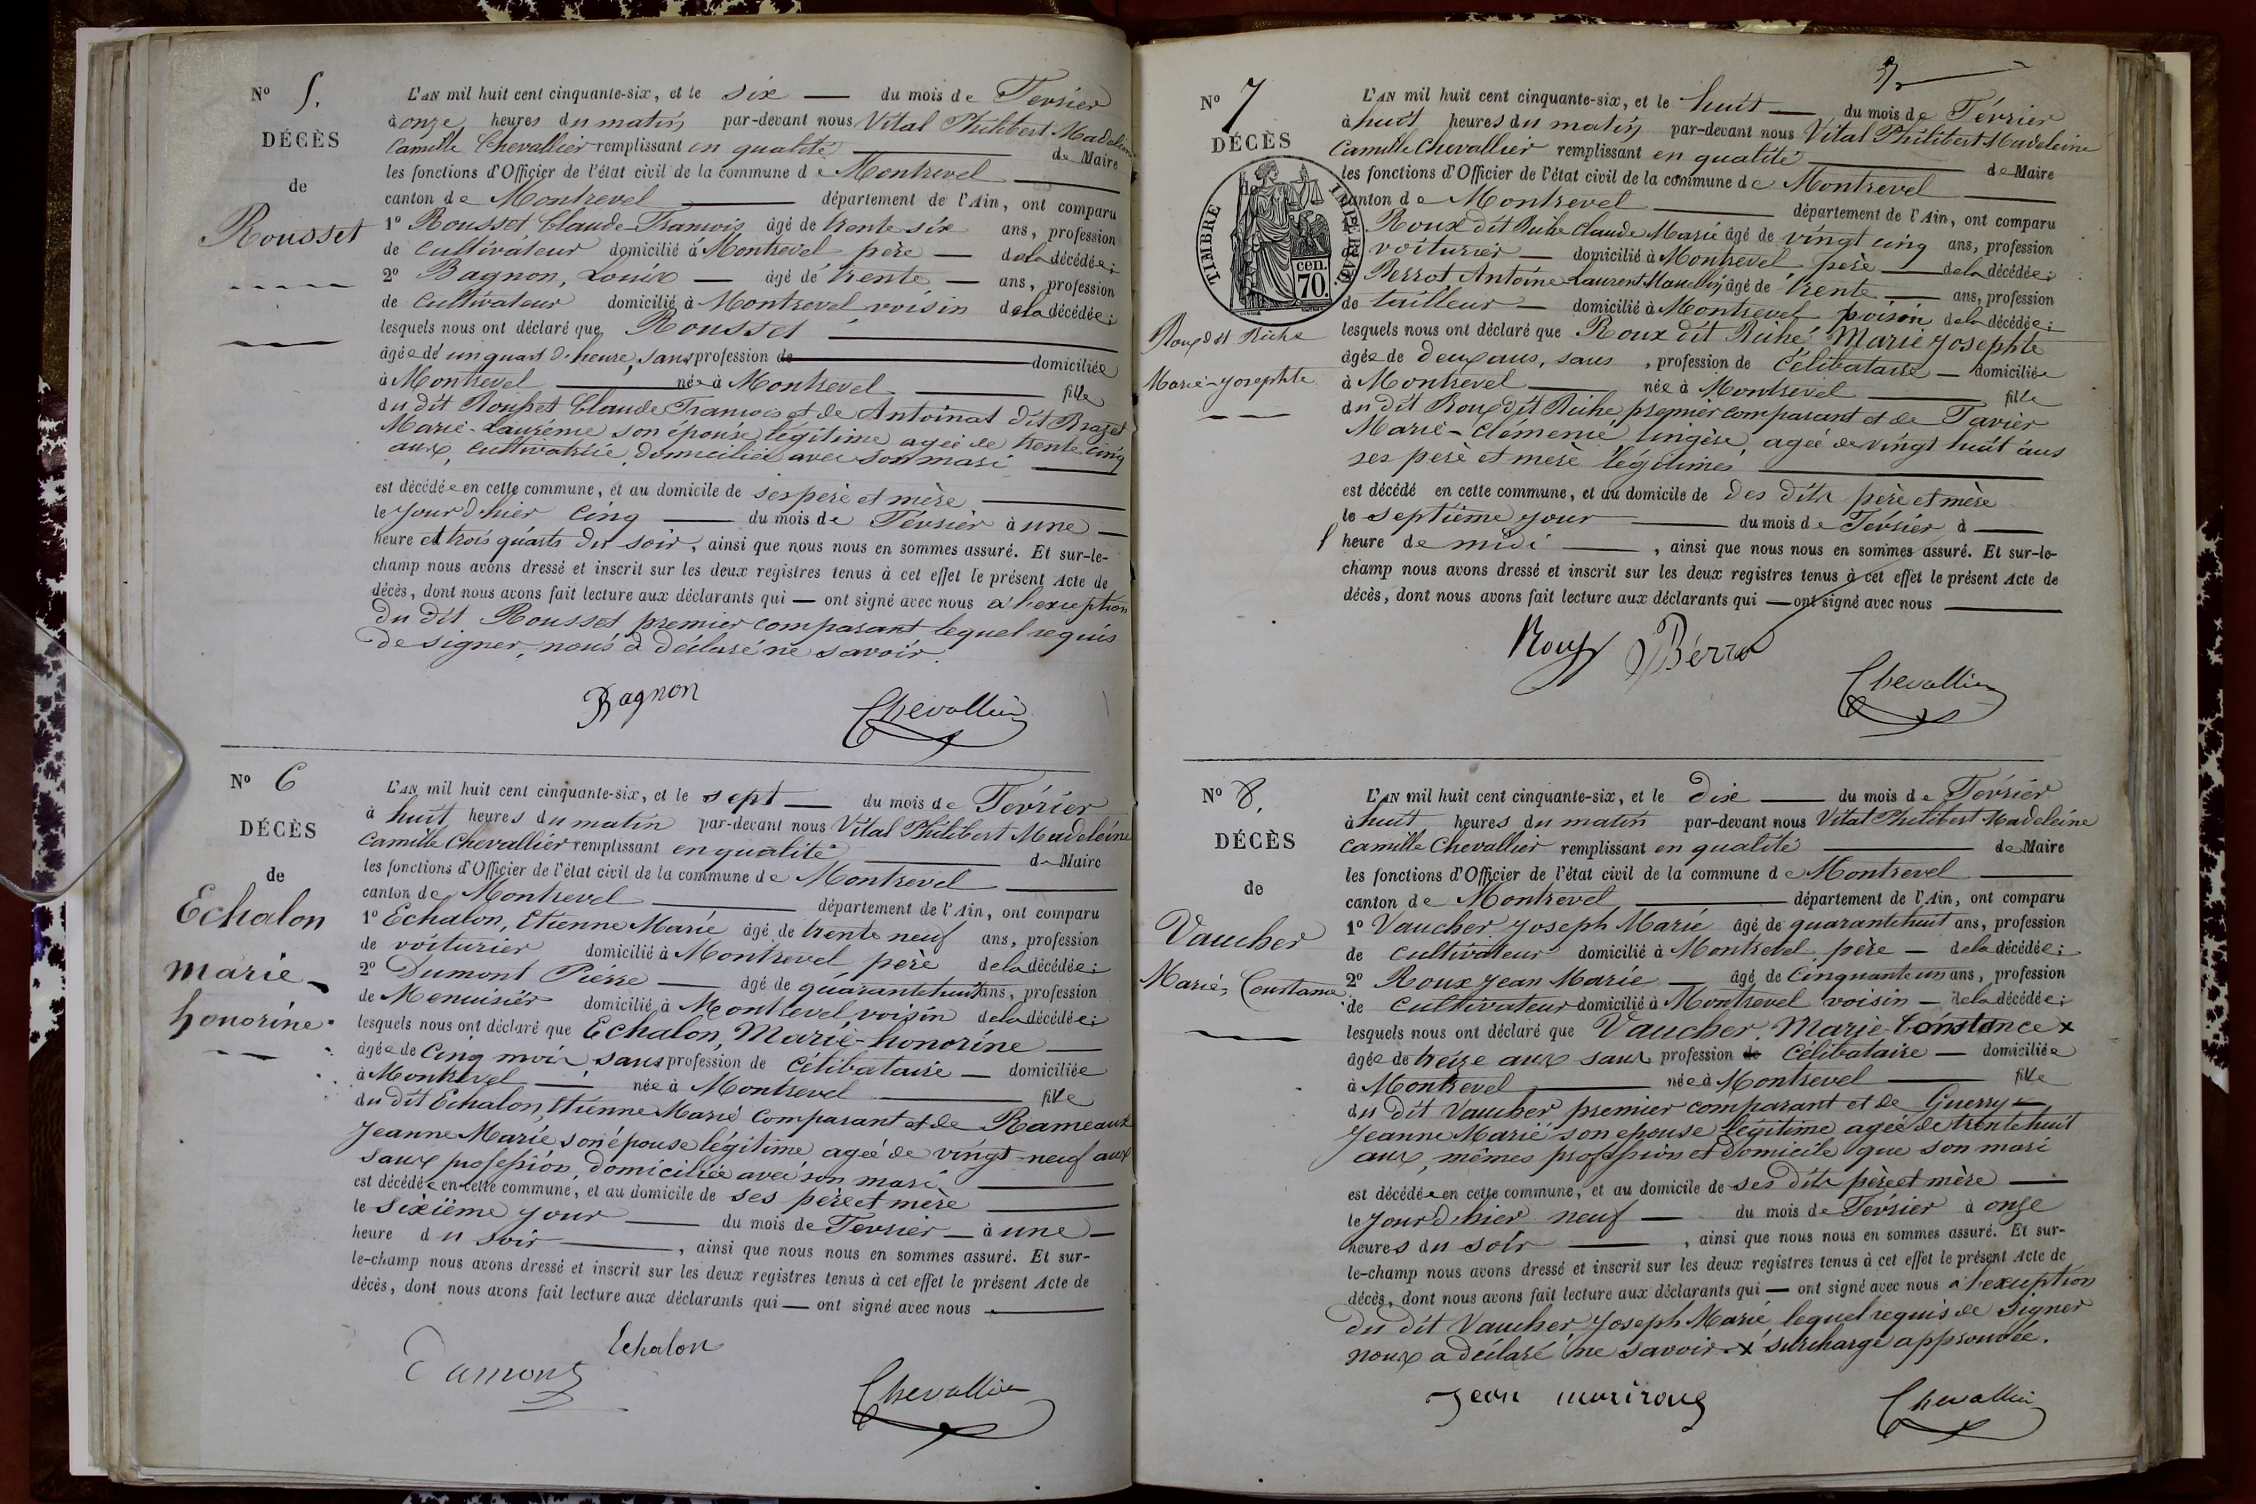 Nº 5.
DÉCÈS
de
Rousset
L'AN mil huit cent cinquante-six, et le six — du mois de Février
à onze heures du matin par-devant nous Vital Philibert Madeleine
Camille Chevallier remplissant en qualité — de Maire
les fonctions d'Officier de l'état civil de la commune de Montrevel —
canton de Montrevel — département de l'Ain, ont comparu
1º Rousset Claude-François âgé de trente six ans, profession
de cultivateur domicilié à Montrevel père — de la décédée;
2º Bagnon, Louis — âgé de trente — ans, profession
de cultivateur domicilié à Montrevel voisin de la décédée;
lesquels nous ont déclaré que Rousset —
âgée de un quart d'heure, sans profession de — domiciliée
à Montrevel — née à Montrevel — fille
du dit Rousset Claude François et de Antoinat dit Brazet
Marie-Laurence son épouse légitime agée de trente cinq
ans, cultivatrice, domiciliée avec son mari —
est décédée en cette commune, et au domicile de ses père et mère —
le jour d'hier cinq — du mois de Février à une —
heure et trois quarts du soir, ainsi que nous nous en sommes assuré. Et sur-le-
champ nous avons dressé et inscrit sur les deux registres tenus à cet effet le présent Acte de
décès, dont nous avons fait lecture aux déclarants qui — ont signé avec nous à l'exception
du dit Rousset premier comparant lequel requis
de signer, nous a déclaré ne savoir.
Bagnon Chevallier
Nº 6
DÉCÈS
de
Echalon
marie-
honorine.
L'AN mil huit cent cinquante-six, et le sept — du mois de Février
à huit heures du matin par-devant nous Vital Philibert Madeleine
Camille Chevallier remplissant en qualité — de Maire
les fonctions d'Officier de l'état civil de la commune de Montrevel —
canton de Montrevel — département de l'Ain, ont comparu
1º Echalon, Etienne Marie âgé de trente neuf ans, profession
de voiturier domicilié à Montrevel père de la décédée;
2º Dumont Pierre — âgé de quarante huit ans, profession
de Menuisier domicilié à Montrevel voisin de la décédée;
lesquels nous ont déclaré que Echalon, Marie-honorine —
âgée de cinq mois sans profession de célibataire — domiciliée
à Montrevel — née à Montrevel — fille
du dit Echalon, Etienne Marie comparant et de Rameaux
Jeanne Marie son épouse légitime agée de vingt-neuf ans
sans profession, domiciliée avec son mari —
est décédée en cette commune, et au domicile de ses père et mère —
le sixième jour — du mois de Février — à une —
heure du soir —, ainsi que nous nous en sommes assuré. Et sur-
le-champ nous avons dressé et inscrit sur les deux registres tenus à cet effet le présent Acte de
décès, dont nous avons fait lecture aux déclarants qui — ont signé avec nous —
Echalon
Dumont Chevallier
Nº 7
DÉCÈS
TIMBRE IMPÉRIAL
cen.
70.
Roux dit Riche
Marie-Josephte
L'AN mil huit cent cinquante-six, et le huit — du mois de Février
à huit heures du matin par-devant nous Vital Philibert Madeleine
Camille Chevallier remplissant en qualité — de Maire
les fonctions d'Officier de l'état civil de la commune de Montrevel —
canton de Montrevel — département de l'Ain, ont comparu
Roux dit Riche Claude Marie âgé de vingt cinq ans, profession
voiturier — domicilié à Montrevel père — de la décédée;
Perrot Antoine Laurent Marcellin âgé de trente — ans, profession
de tailleur — domicilié à Montrevel voisin de la décédée;
lesquels nous ont déclaré que Roux dit Riche Marie Josephte
âgée de deux ans, sans, profession de célibataire — domiciliée
à Montrevel — née à Montrevel — fille
du dit Roux dit Riche premier comparant et de Tavier
Marie-Clémence lingère agée de vingt huit ans
ses père et mère légitimes —
est décédé en cette commune, et au domicile de des dits père et mère
le septième jour — du mois de Février à —
heure de midi —, ainsi que nous nous en sommes assuré. Et sur-le-
champ nous avons dressé et inscrit sur les deux registres tenus à cet effet le présent Acte de
décès, dont nous avons fait lecture aux déclarants qui — ont signé avec nous —
Roux Chevallier
Nº 8.
DÉCÈS
de
Vaucher
Marie, Constance
L'AN mil huit cent cinquante-six, et le dix — du mois de Février
à huit heures du matin par-devant nous Vital Philibert Madeleine
Camille Chevallier remplissant en qualité — de Maire
les fonctions d'Officier de l'état civil de la commune de Montrevel —
canton de Montrevel — département de l'Ain, ont comparu
1º Vaucher Joseph Marie âgé de quarante huit ans, profession
de cultivateur domicilié à Montrevel père — de la décédée;
2º Roux Jean Marie — âgé de cinquante un ans, profession
de cultivateur domicilié à Montrevel voisin — de la décédée;
lesquels nous ont déclaré que Vaucher, Marie-Constance x
âgée de treize ans sans profession de célibataire — domiciliée
à Montrevel — née à Montrevel — fille
du dit Vaucher premier comparant et de Guerry —
Jeanne Marie son epouse légitime agée de trente huit
ans, mêmes profession et domicile que son mari
est décédée en cette commune, et au domicile de ses dits père et mère —
le jour d'hier neuf — du mois de Février à onze
heures du soir —, ainsi que nous nous en sommes assuré. Et sur-
le-champ nous avons dressé et inscrit sur les deux registres tenus à cet effet le présent Acte de
décès, dont nous avons fait lecture aux déclarants qui — ont signé avec nous à l'exception
du dit Vaucher Joseph Marie lequel requis de signer
nous a déclaré ne savoir. x surcharge approuvée.
Jean mariroux Chevallier